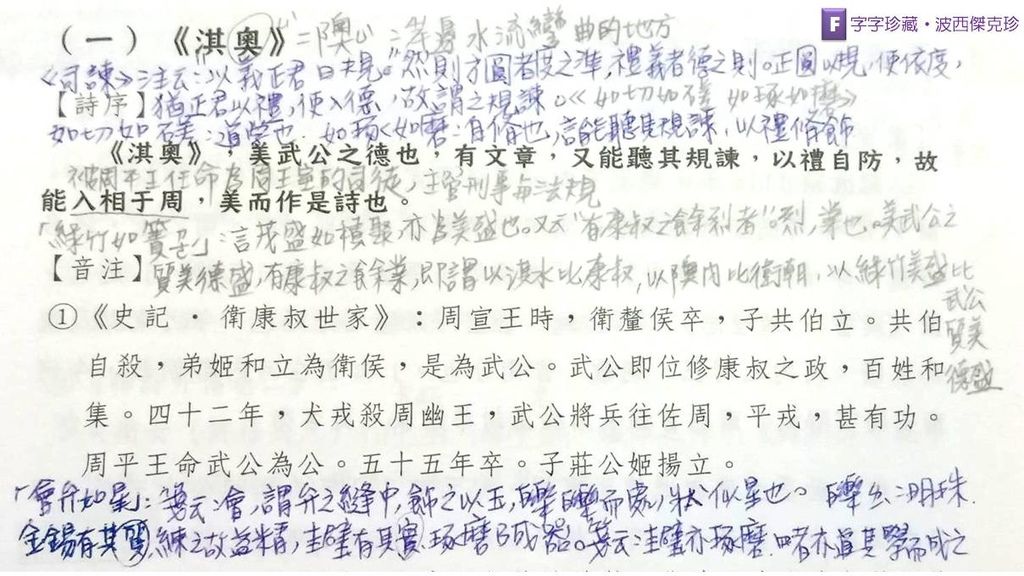 F 字字珍藏・波西傑克珍
(一)《淇奧》=「隩」:岸邊水流彎曲的地方
《司諫》注云:以義正君曰規。然則方圓者度之準,禮義者德之則。正圓以規,使依度,
【詩序】猶正君以禮,使入德,故謂之規諫。《如切如磋 如琢如磨》
如切如磋:道學也. 如琢如磨:自脩也,言能聽其規諫,以禮脩飾
《淇奧》,美武公之德也,有文章,又能聽其規諫,以禮自防,故
被周平王任命為周王室的司徒,主管刑事與法規
能入相于周,美而作是詩也。
「綠竹如簀」:言茂盛如積聚,亦為美盛也。又云"有康叔之餘烈者"烈,業也。美武公之
【音注】質美德盛,有康叔之餘業,即謂以淇水比康叔,以隩內比衛朝,以綠竹美盛比
武公
質美
德盛
①《史記.衛康叔世家》:周宣王時,衛釐侯卒,子共伯立。共伯
自殺,弟姬和立為衛侯,是為武公。武公即位修康叔之政,百姓和
集。四十二年,犬戎殺周幽王,武公將兵往佐周,平戎,甚有功。
周平王命武公為公。五十五年卒。子莊公姬揚立。
「會弁如星」:箋云會,謂弁之縫中,飾之以玉,皪皪而處,狀似星也。皪:明珠.
金錫有其質,練之故益精,圭璧有其實.琢磨乃成器。箋云圭璧亦琢磨.者亦道其學而成之